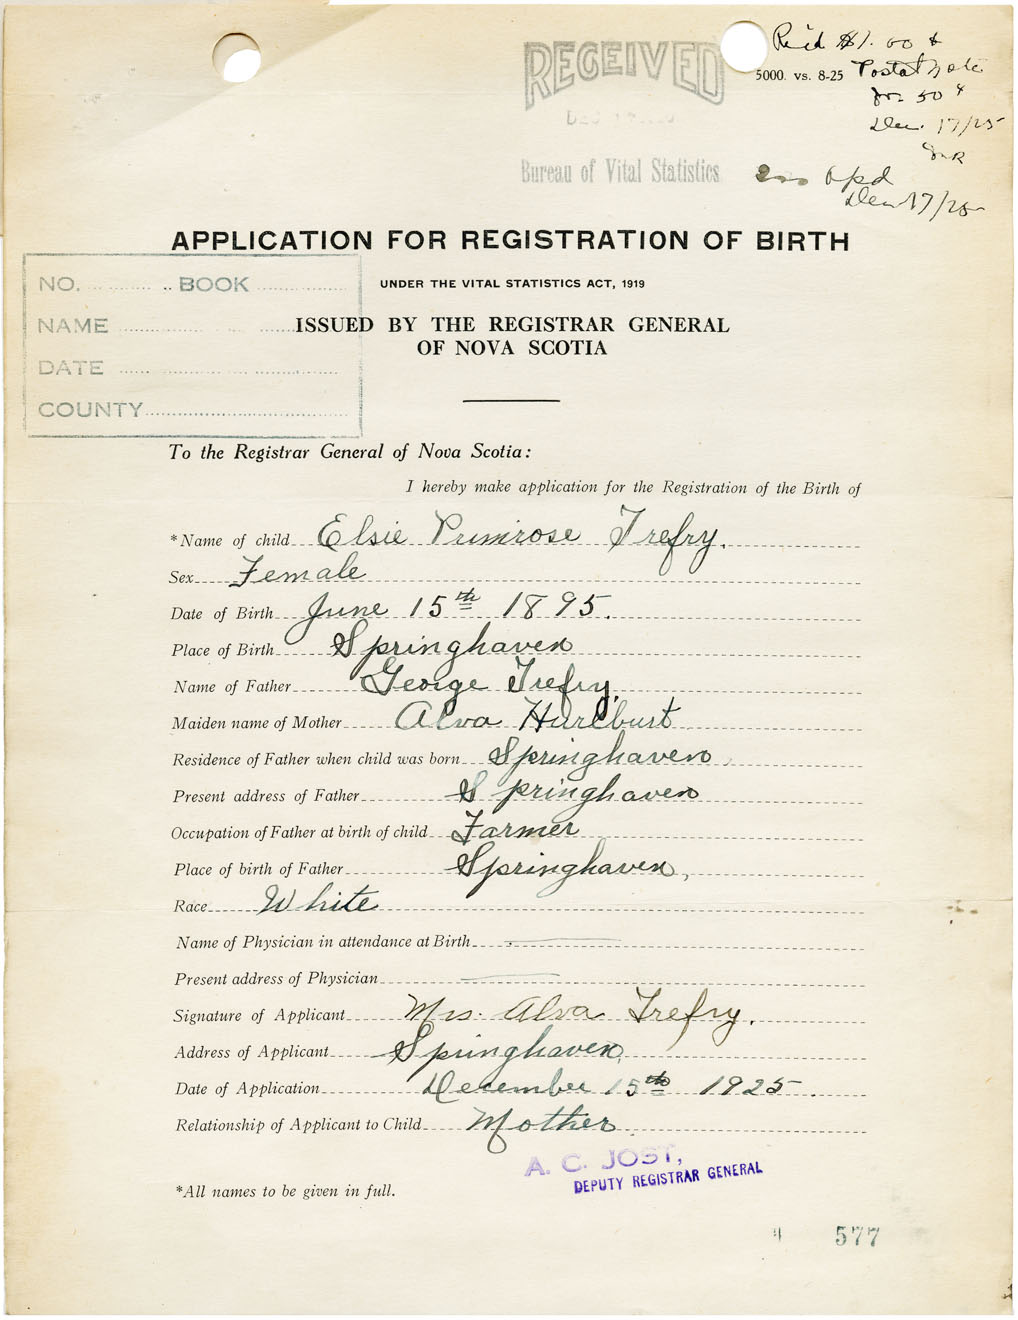 Rec'd $1.00 &
5000. vs. 8-25 Postal Note
for 50 ¢
Dec. 17/25
RECEIVED
DEC 17 1925
Bureau of Vital Statistics
Apd
Dec 17/25
APPLICATION FOR REGISTRATION OF BIRTH
UNDER THE VITAL STATISTICS ACT, 1919
ISSUED BY THE REGISTRAR GENERAL
OF NOVA SCOTIA
NO. BOOK
NAME
DATE
COUNTY
To the Registrar General of Nova Scotia:
I hereby make application for the Registration of the Birth of
*Name of child Elsie Primrose Trefry.
Sex Female
Date of Birth June 15th 1895.
Place of Birth Springhaven
Name of Father George Trefry.
Maiden name of Mother Alva Hurlburt
Residence of Father when child was born Springhaven
Present address of Father Springhaven
Occupation of Father at birth of child Farmer
Place of birth of Father Springhaven,
Race White
Name of Physician in attendance at Birth
Present address of Physician
Signature of Applicant Mrs. Alva Trefry.
Address of Applicant Springhaven,
Date of Application December 15th 1925.
Relationship of Applicant to Child Mother.
A. C. JOST,
DEPUTY REGISTRAR GENERAL
*All names to be given in full.
577